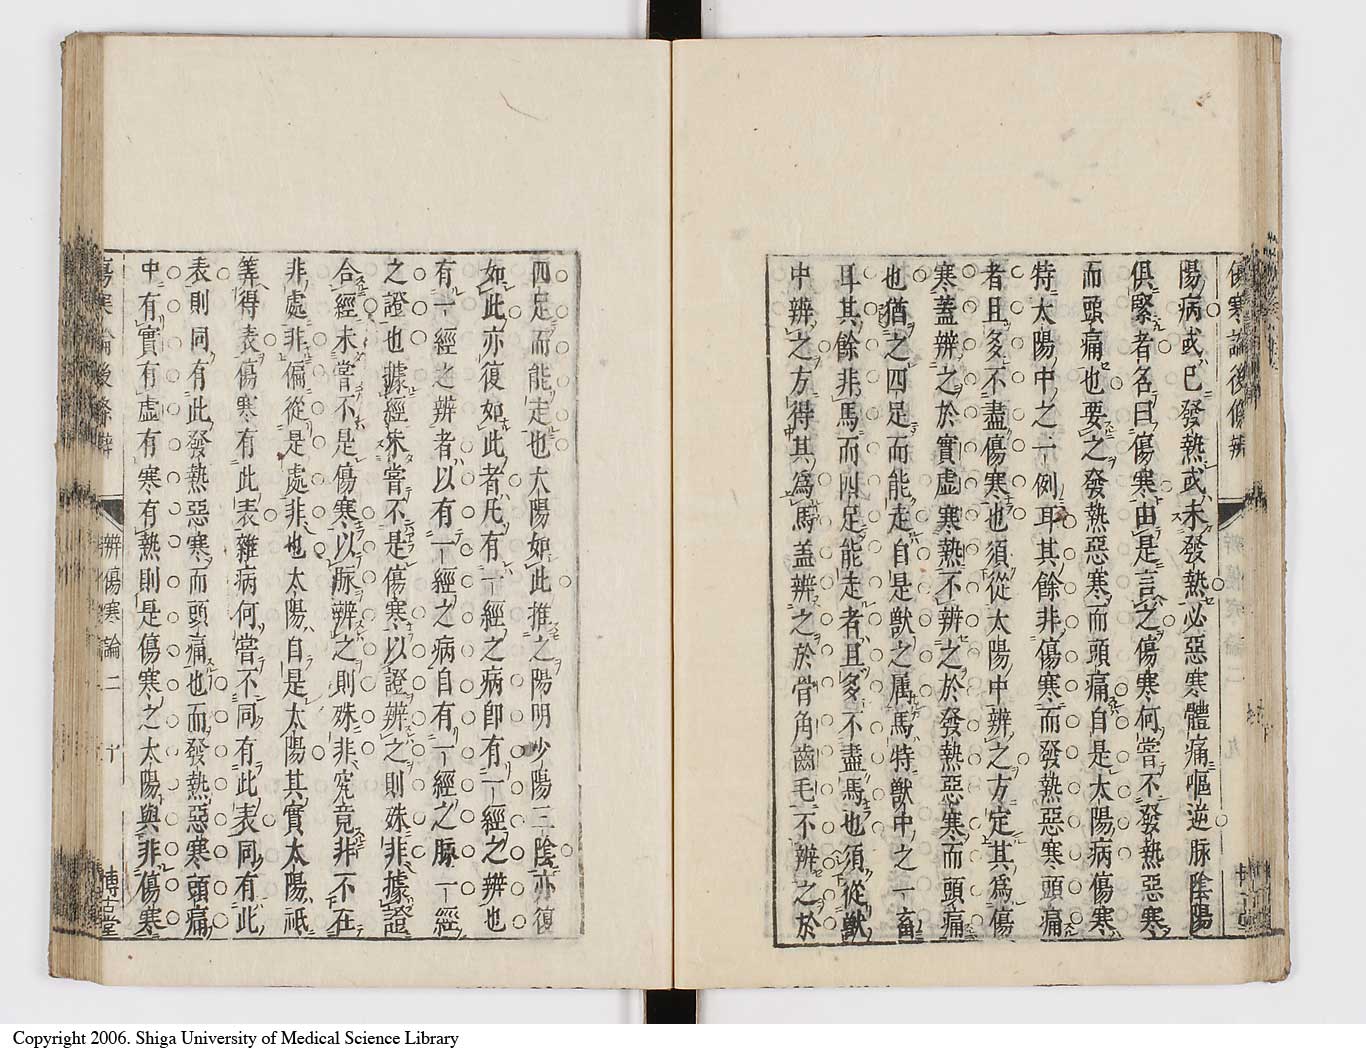 傷寒論後條辨
陽病或已發熱或未發熱必惡寒體痛嘔逆脉陰陽
俱緊者名曰傷寒由是言之傷寒何嘗不發熱惡寒
而頭痛也要之發熱惡寒而頭痛自是太陽病傷寒
特太陽中之一例耳其餘非傷寒而發熱惡寒頭痛
者且多不盡傷寒也須從太陽中辨之方定其爲傷
寒蓋辨之於實虛寒熱不辨之於發熱惡寒而頭痛
也猶之四足而能走自是獸之属馬特獸中之一畜
耳其餘非馬而四足能走者且多不盡馬也須從獸
中辨之方得其爲馬蓋辨之於骨角齒毛不辨之於
四足而能走也太陽如此推之陽明少陽三陰亦復
如此亦復如此者凡有一經之病卽有一經之辨也
有一經之辨者以有一經之病自有一經之脉一經
之證也據經未嘗不是傷寒以證辨之則殊非據證
合經未嘗不是傷寒以脉辨之則殊非究竟非不在
非處非偏從是處非也太陽自是太陽其實太陽祇
筭得表傷寒有此表雜病何嘗不同有此表同有此
表則同有此發熱惡寒而頭痛也而發熱惡寒頭痛
中有實有虛有寒有熱則是傷寒之太陽與非傷寒
傷寒論後條辨 辨傷寒論二 十 博古堂
Copyright 2006. Shiga University of Medical Science Library